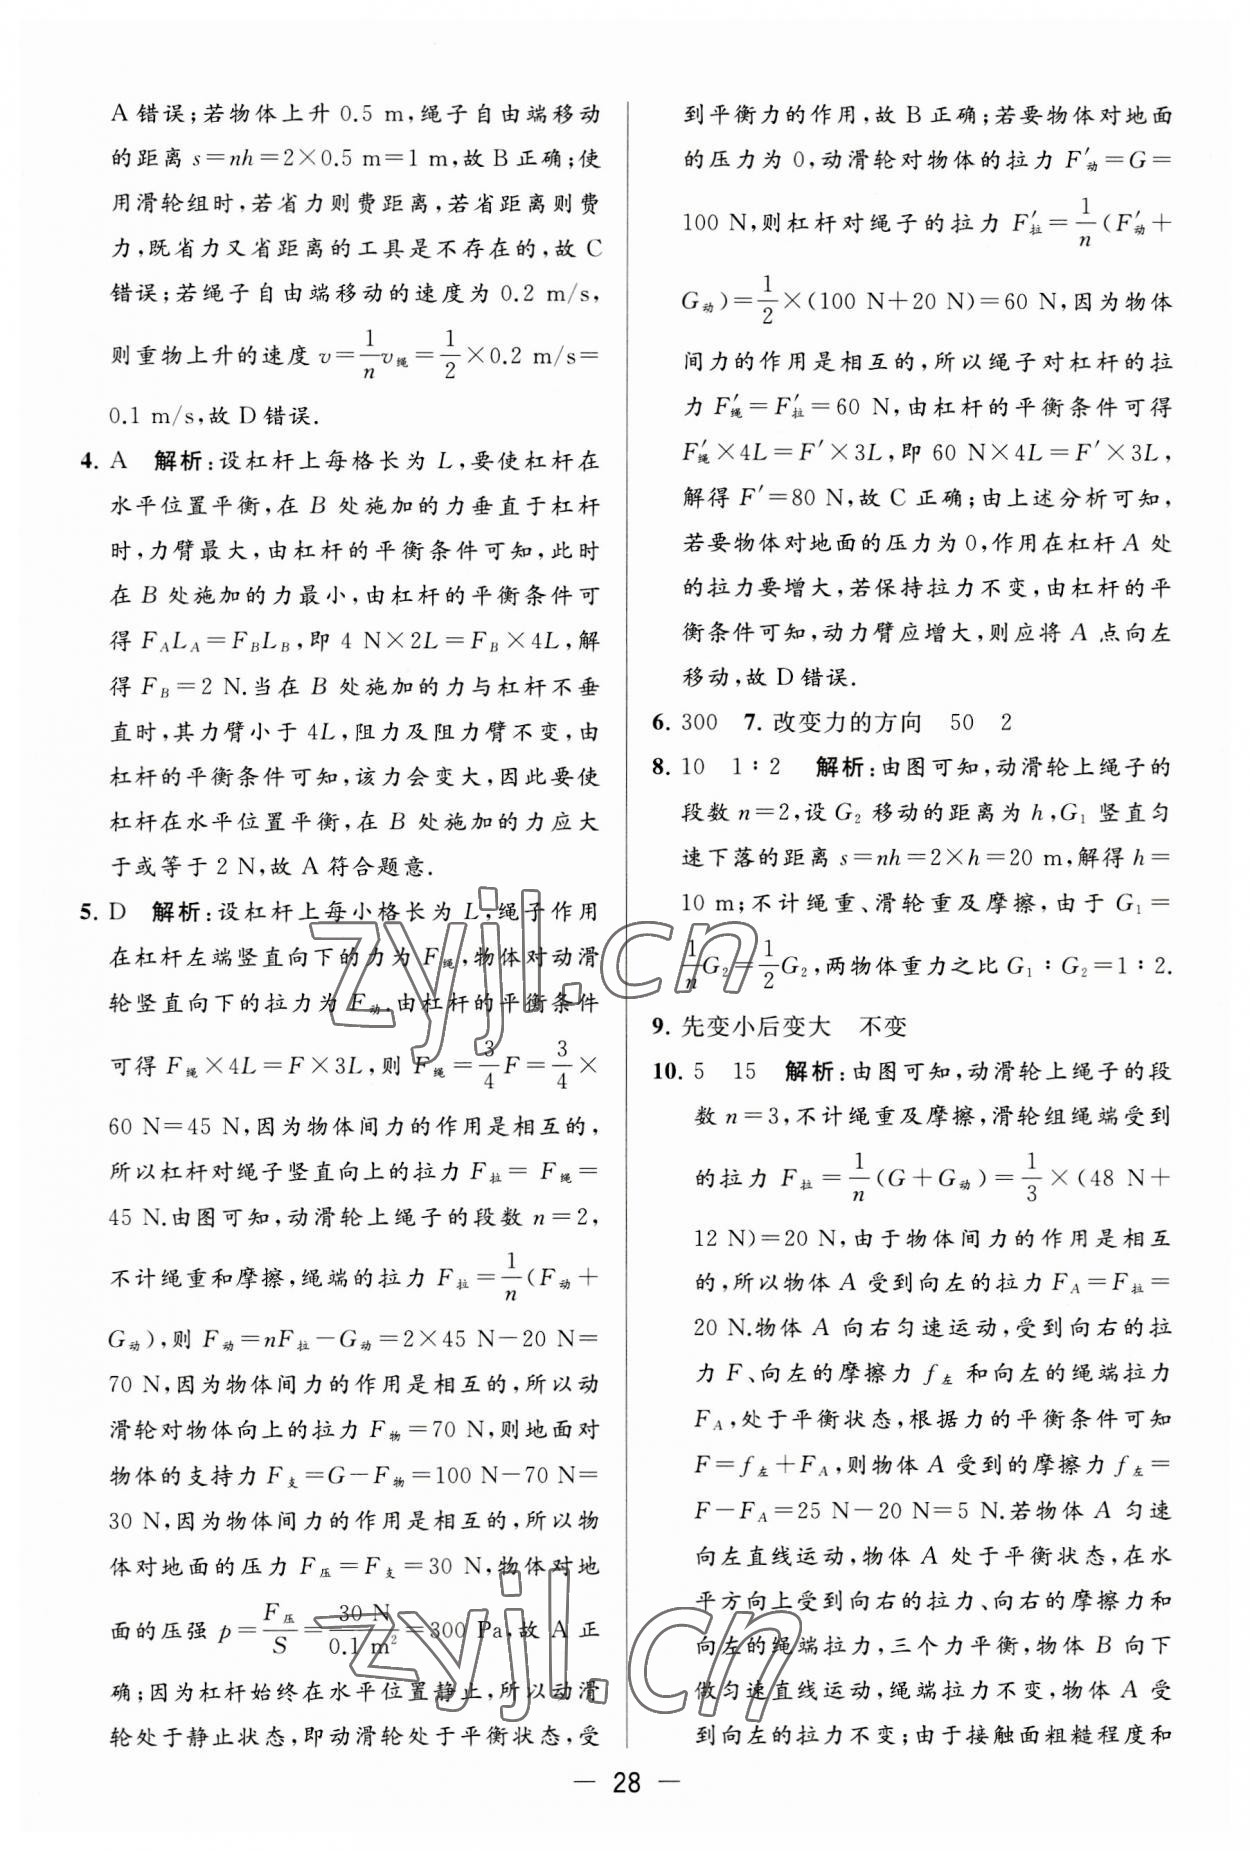 A 错误;若物体上升 0.5 m,绳子自由端移动
的距离 s=nh=2×0.5 m=1 m,故 B 正确;使
用滑轮组时,若省力则费距离,若省距离则费
力,既省力又省距离的工具是不存在的,故 C
错误;若绳子自由端移动的速度为 0.2 m/s,
则重物上升的速度 v=1/n v绳=1/2×0.2 m/s=
0.1 m/s,故 D 错误.
4. A 解析:设杠杆上每格长为 L,要使杠杆在
水平位置平衡,在 B 处施加的力垂直于杠杆
时,力臂最大,由杠杆的平衡条件可知,此时
在 B 处施加的力最小,由杠杆的平衡条件可
得 F_A L_A=F_B L_B,即 4 N×2L=F_B×4L,解
得 F_B=2 N.当在 B 处施加的力与杠杆不垂
直时,其力臂小于 4L,阻力及阻力臂不变,由
杠杆的平衡条件可知,该力会变大,因此要使
杠杆在水平位置平衡,在 B 处施加的力应大
于或等于 2 N,故 A 符合题意.
5. D 解析:设杠杆上每小格长为 L,绳子作用
在杠杆左端竖直向下的力为 F绳,物体对动滑
轮竖直向下的拉力为 F动.由杠杆的平衡条件
可得 F绳×4L=F×3L,则 F绳=3/4 F=3/4×
60 N=45 N,因为物体间力的作用是相互的,
所以杠杆对绳子竖直向上的拉力 F拉= F绳=
45 N.由图可知,动滑轮上绳子的段数 n=2,
不计绳重和摩擦,绳端的拉力 F拉=1/n(F动+
G动),则 F动=nF拉-G动=2×45 N-20 N=
70 N,因为物体间力的作用是相互的,所以动
滑轮对物体向上的拉力 F物=70 N,则地面对
物体的支持力 F支=G-F物=100 N-70 N=
30 N,因为物体间力的作用是相互的,所以物
体对地面的压力 F压=F支=30 N,物体对地
面的压强 p=F压/S=30 N/0.1 m²=300 Pa,故 A 正
确;因为杠杆始终在水平位置静止,所以动滑
轮处于静止状态,即动滑轮处于平衡状态,受
到平衡力的作用,故 B 正确;若要物体对地面
的压力为 0,动滑轮对物体的拉力 F′动=G=
100 N,则杠杆对绳子的拉力 F′拉=1/n(F′动+
G动)=1/2×(100 N+20 N)=60 N,因为物体
间力的作用是相互的,所以绳子对杠杆的拉
力 F′绳=F′拉=60 N,由杠杆的平衡条件可得
F′绳×4L=F′×3L,即 60 N×4L=F′×3L,
解得 F′=80 N,故 C 正确;由上述分析可知,
若要物体对地面的压力为 0,作用在杠杆 A 处
的拉力要增大,若保持拉力不变,由杠杆的平
衡条件可知,动力臂应增大,则应将 A 点向左
移动,故 D 错误.
6. 300 7. 改变力的方向 50 2
8. 10 1∶2 解析:由图可知,动滑轮上绳子的
段数 n=2,设 G₂ 移动的距离为 h,G₁ 竖直匀
速下落的距离 s=nh=2×h=20 m,解得 h=
10 m;不计绳重、滑轮重及摩擦,由于 G₁=
1/n G₂=1/2 G₂,两物体重力之比 G₁∶G₂=1∶2.
9. 先变小后变大 不变
10. 5 15 解析:由图可知,动滑轮上绳子的段
数 n=3,不计绳重及摩擦,滑轮组绳端受到
的拉力 F拉=1/n(G+G动)=1/3×(48 N+
12 N)=20 N,由于物体间力的作用是相互
的,所以物体 A 受到向左的拉力 F_A=F拉=
20 N.物体 A 向右匀速运动,受到向右的拉
力 F、向左的摩擦力 f左 和向左的绳端拉力
F_A,处于平衡状态,根据力的平衡条件可知
F=f左+F_A,则物体 A 受到的摩擦力 f左=
F-F_A=25 N-20 N=5 N.若物体 A 匀速
向左直线运动,物体 A 处于平衡状态,在水
平方向上受到向右的拉力、向右的摩擦力和
向左的绳端拉力,三个力平衡,物体 B 向下
做匀速直线运动,绳端拉力不变,物体 A 受
到向左的拉力不变;由于接触面粗糙程度和
— 28 —
zyjl.cn
zyjl.cn